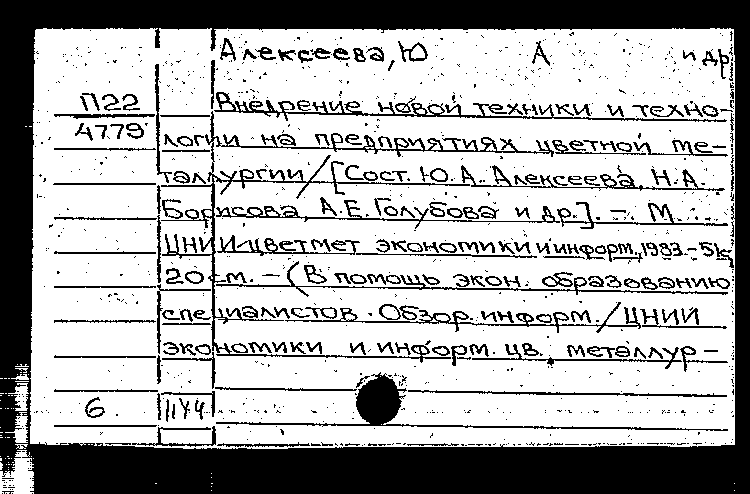 Алексеева, Ю А и др
П22 Внедрение новой техники и техно-
4779 логии на предприятиях цветной ме-
таллургии/[Сост. Ю.А. Алексеева, Н.А.
Борисова, А.Е. Голубова и др.]. – М.:
ЦНИИцветмет экономики и информ., 1983.–51с;
20см. – (В помощь экон. образованию
специалистов. Обзор. информ./ЦНИИ
экономики и информ. цв. металлур–
6.